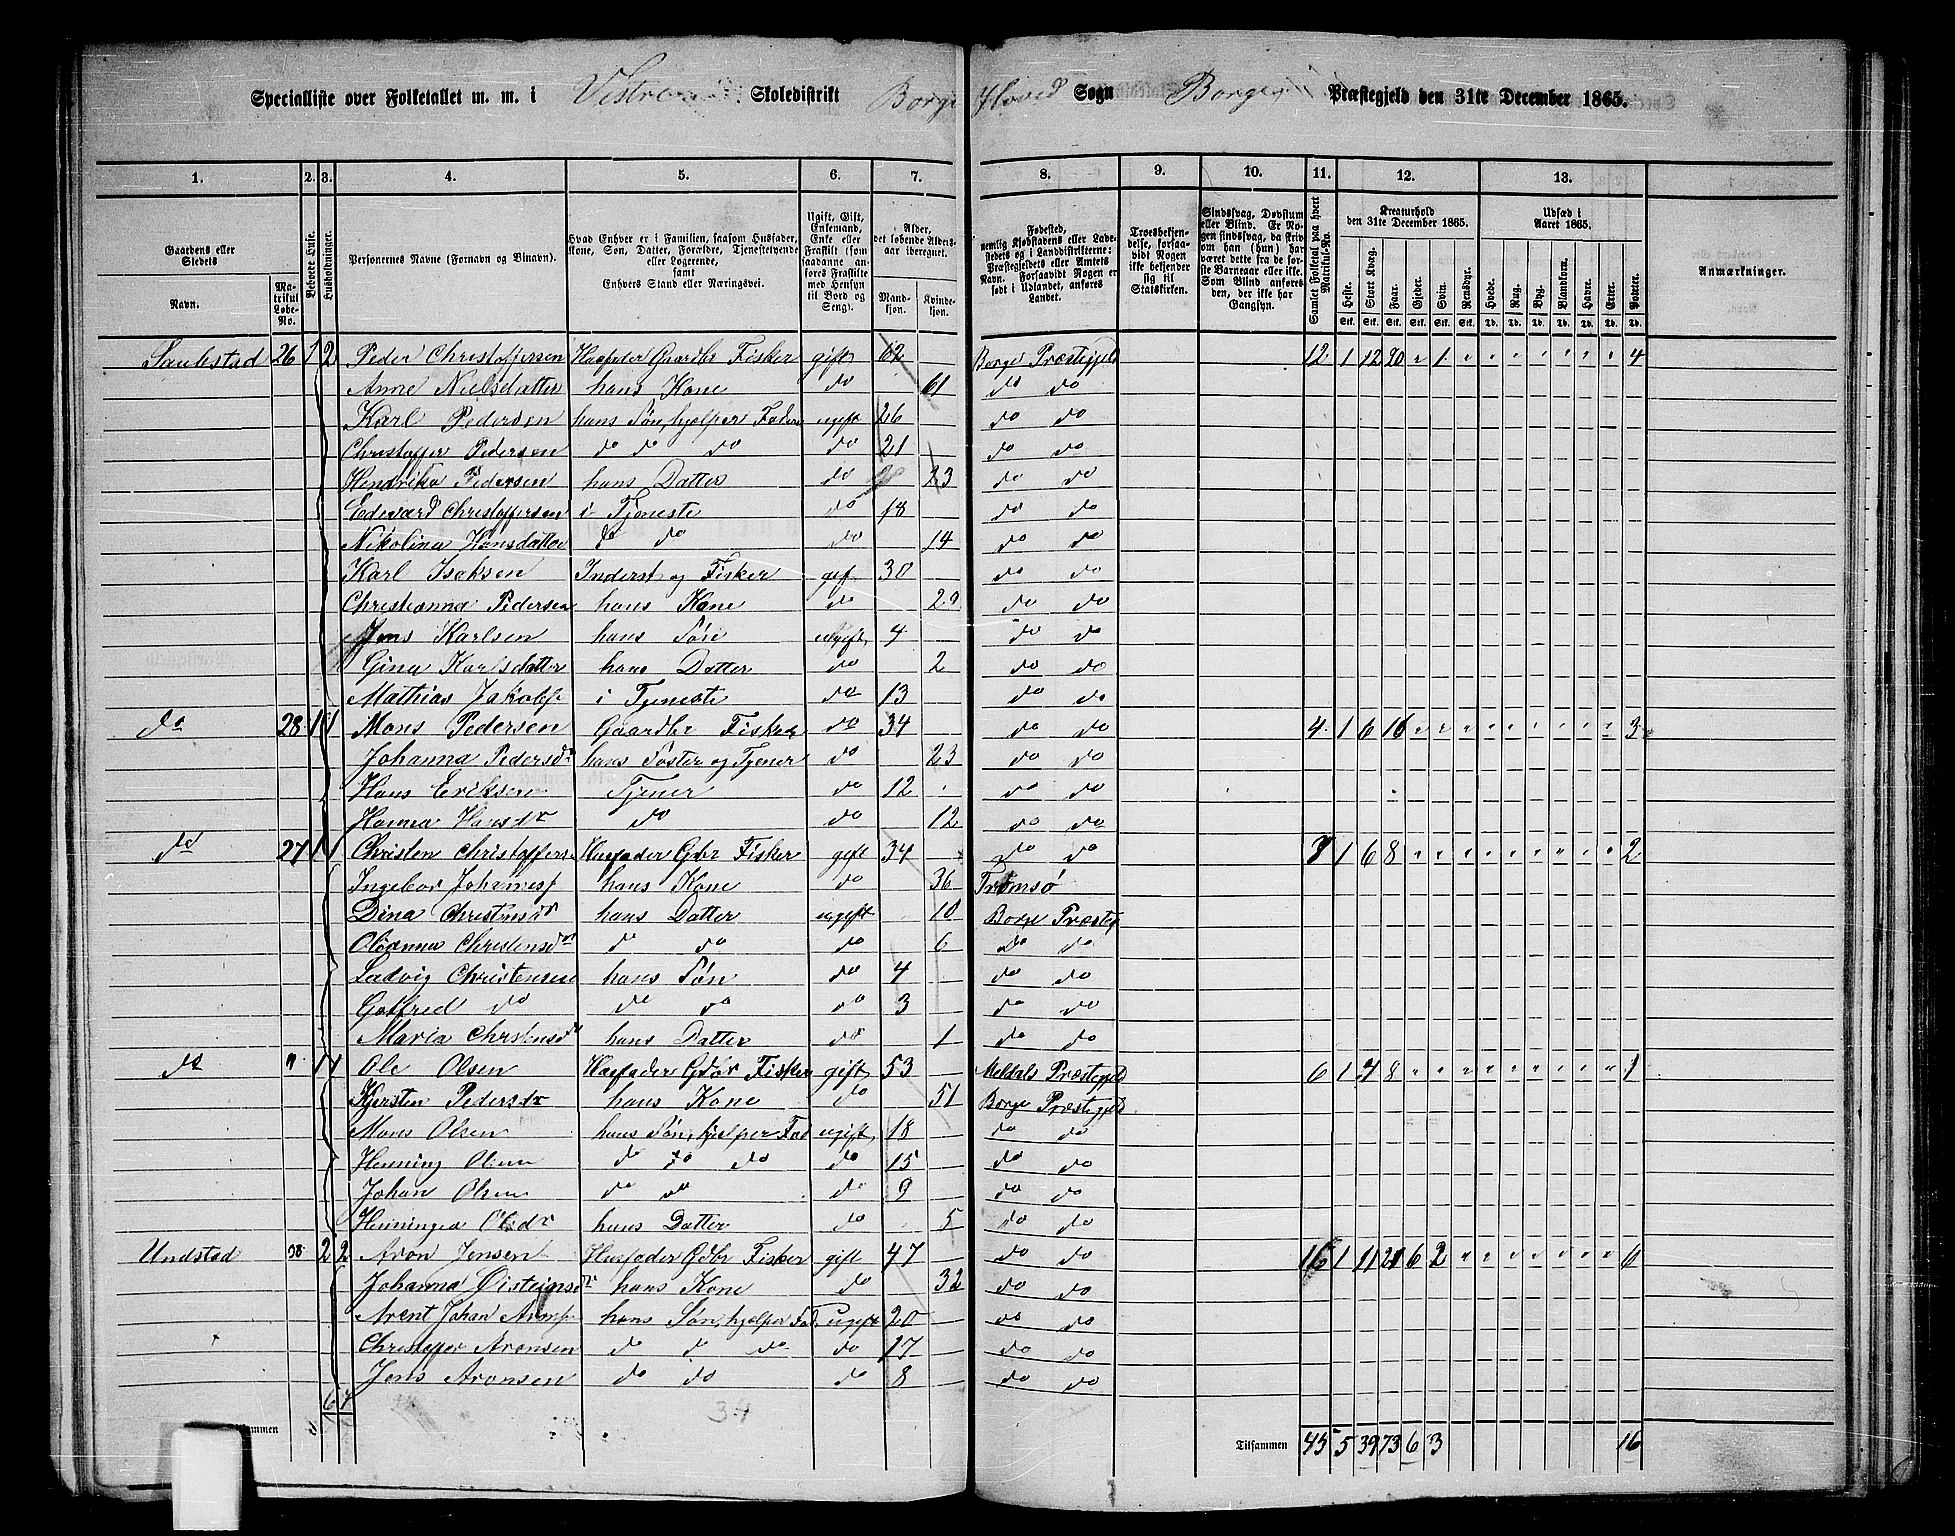 Specialliste over Folketallet m. m. i Vestre Skoledistrikt Borge Hoved Sogn Borge Præstegjeld den 31te December 1865.
1. 2. 3. 4. 5. 6. 7. 8. 9. 10. 11. 12. 13.
Gaardens eller Stedets Navn. Matrikul Løbe-No. Beboede Huse. Husholdninger. Personernes Navne (Fornavn og Binavn). Hvad Enhver er i Familien, saasom Husfader, Kone, Søn, Datter, Forældre, Tjenestetyende eller Logerende, samt Enhvers Stand eller Næringsvei. Ugift, Gift, Enkemand, Enke eller Fraskilt (som saadanne anføres Fraskilte med Hensyn til Bord og Seng). Alder, det løbende Aldersaar iberegnet. Mandkjøn. Kvindekjøn. Fødested, nemlig Kjøbstadens eller Ladestedets og i Landdistrikterne: Præstegjeldets eller Amtets Navn. Forsaavidt Nogen er født i Udlandet, anføres Landet. Troesbekjendelse, forsaavidt Nogen ikke bekjender sig til Statskirken. Sindssvag, Døvstum eller Blind. Er Nogen sindssvag, da skriv om han (hun) har været dette fra de første Barneaar eller ikke. Som Blind anføres den, der ikke har Gangsyn. Samlet Folketal paa hvert Matrikul-No. Kreaturhold den 31te December 1865. Heste. Stort Kvæg. Faar. Gjeder. Svin. Rensdyr. Udsæd i Aaret 1865. Hvede. Rug. Byg. Blandkorn. Havre. Erter. Poteter. Anmærkninger.
26 1 2 Peder Christoffersen Husfader Gaardbr Fisker gift 62 Borge Præstegjeld 12 1 12 20 " 1 " " " " " " " 4
Anne Nielsdatter hans Kone do 61 do do
Karl Pedersen hans Søn, hjelper Faderen ugift 26 do do
Christoffer Pedersen do do do do 21 do do
Hendrika Pedersen hans Datter do 23 do do
Edevard Christoffersen i Tjeneste do 18 do do
Nikolina Hansdatter do do do 14 do do
Karl Isaksen Inderst og Fisker gift 30 do do
Christianna Pedersen hans Kone do 29 do do
Jens Karlsen hans Søn ugift 4 do do
Gina Karlsdatter hans Datter do 2 do do
Mathias Jakobs i Tjeneste do 13 do do
do 28 1 1 Mons Pedersen Gaardbr Fisker do 34 do do 4 1 6 16 " " " " " " " " " 3
Johanna Pedersdr hans Søster og Tjener do 23 do do
Hans Eriksen Tjener do 12 do do
Hanna Hansdr do do 12 do do
do 27 1 1 Christen Christoffersen Husfader Gdbr Fisker gift 34 do do 1 6 8 " " " " " " " " " 2
Ingebor Johannes hans Kone do 36 Tromsø
Dina Christensdr hans Datter ugift 10 Borge Præsteg
Oleanna Christensdr do do do 6 do do
Ludvig Christensen hans Søn do 4 do do
Gotfred do do do do 3 do do
Maria Christensdr hans Datter do 1 do do
do " 1 1 Ole Olsen Husfader Gdbr Fisker gift 53 Meldals Præstegjeld 6 1 7 8 " " " " " " " " " 1
Kjersten Pedersdr hans Kone do 51 Borge Præstegjeld
Mons Olsen hans Søn, hjelper Fad ugift 18 do do
Henning Olsen do do do do 15 do do
Johan Olsen do do do 9 do do
Henningea Olsdr hans Datter do 5 do do
Undstad 38 2 2 Aron Jensen Husfader Gdbr Fisker gift 47 do do 16 1 11 21 6 2 " " " " " " " 6
Johanna Øisteinsdr hans Kone do 32 do do
Arent Johan hans Søn, hjelper Fad. ugift 20 do do
Christoffer Aronsen do do do do 17 do do
Jens Aronsen do do do 8 do do
6 7
34
Tilsammen 45 5 39 73 6 3 16